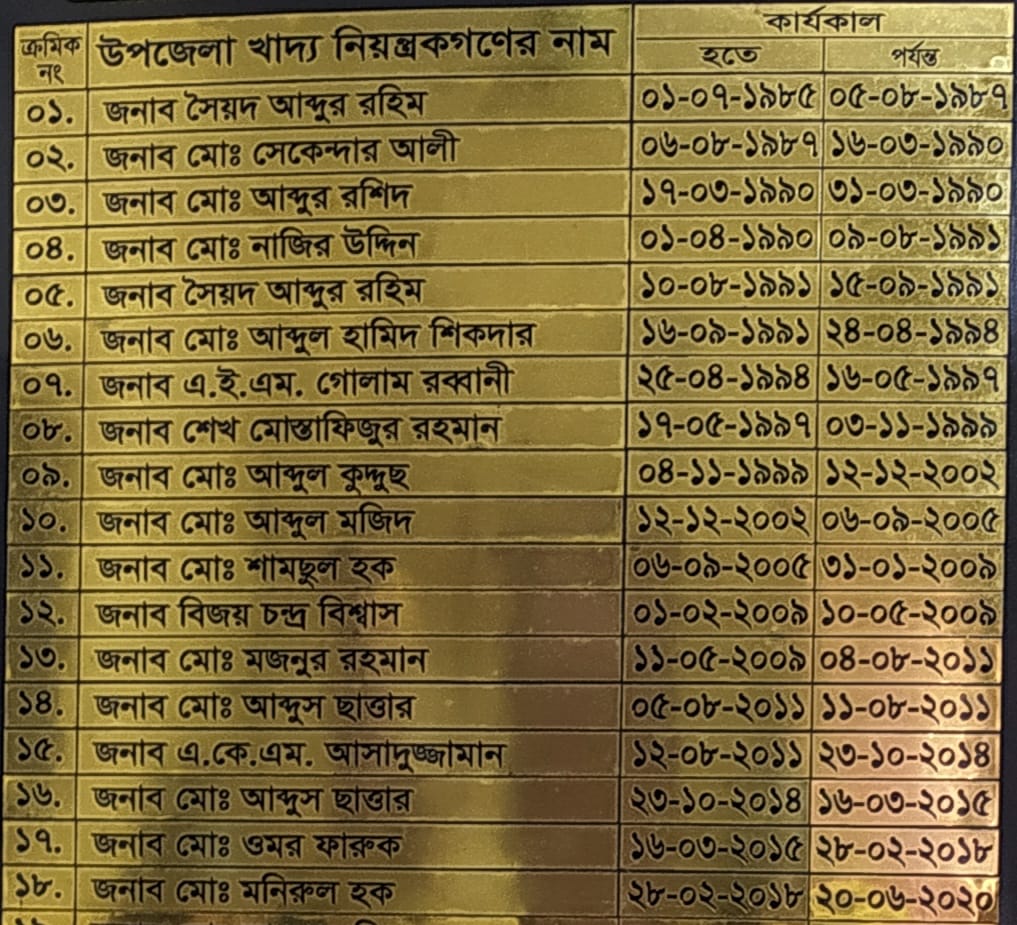 ক্রমিক নং উপজেলা খাদ্য নিয়ন্ত্রকগণের নাম কার্যকাল
হতে পর্যন্ত
০১. জনাব সৈয়দ আব্দুর রহিম ০১-০৭-১৯৮৫ ০৫-০৮-১৯৮৭
০২. জনাব মোঃ সেকেন্দার আলী ০৬-০৮-১৯৮৭ ১৬-০৩-১৯৯০
০৩. জনাব মোঃ আব্দুর রশিদ ১৭-০৩-১৯৯০ ৩১-০৩-১৯৯০
০৪. জনাব মোঃ নাজির উদ্দিন ০১-০৪-১৯৯০ ০৯-০৮-১৯৯১
০৫. জনাব সৈয়দ আব্দুর রহিম ১০-০৮-১৯৯১ ১৫-০৯-১৯৯১
০৬. জনাব মোঃ আব্দুল হামিদ শিকদার ১৬-০৯-১৯৯১ ২৪-০৪-১৯৯৪
০৭. জনাব এ.ই.এম. গোলাম রব্বানী ২৫-০৪-১৯৯৪ ১৬-০৫-১৯৯৭
০৮. জনাব শেখ মোস্তাফিজুর রহমান ১৭-০৫-১৯৯৭ ০৩-১১-১৯৯৯
০৯. জনাব মোঃ আব্দুল কুদ্দুছ ০৪-১১-১৯৯৯ ১২-১২-২০০২
১০. জনাব মোঃ আব্দুল মজিদ ১২-১২-২০০২ ০৬-০৯-২০০৫
১১. জনাব মোঃ শামছুল হক ০৬-০৯-২০০৫ ৩১-০১-২০০৯
১২. জনাব বিজয় চন্দ্র বিশ্বাস ০১-০২-২০০৯ ১০-০৫-২০০৯
১৩. জনাব মোঃ মজনুর রহমান ১১-০৫-২০০৯ ০৪-০৮-২০১১
১৪. জনাব মোঃ আব্দুস ছাত্তার ০৫-০৮-২০১১ ১১-০৮-২০১১
১৫. জনাব এ.কে.এম. আসাদুজ্জামান ১২-০৮-২০১১ ২৩-১০-২০১৪
১৬. জনাব মোঃ আব্দুস ছাত্তার ২৩-১০-২০১৪ ১৬-০৩-২০১৫
১৭. জনাব মোঃ ওমর ফারুক ১৬-০৩-২০১৫ ২৮-০২-২০১৮
১৮. জনাব মোঃ মনিরুল হক ২৮-০২-২০১৮ ২০-০৬-২০২০